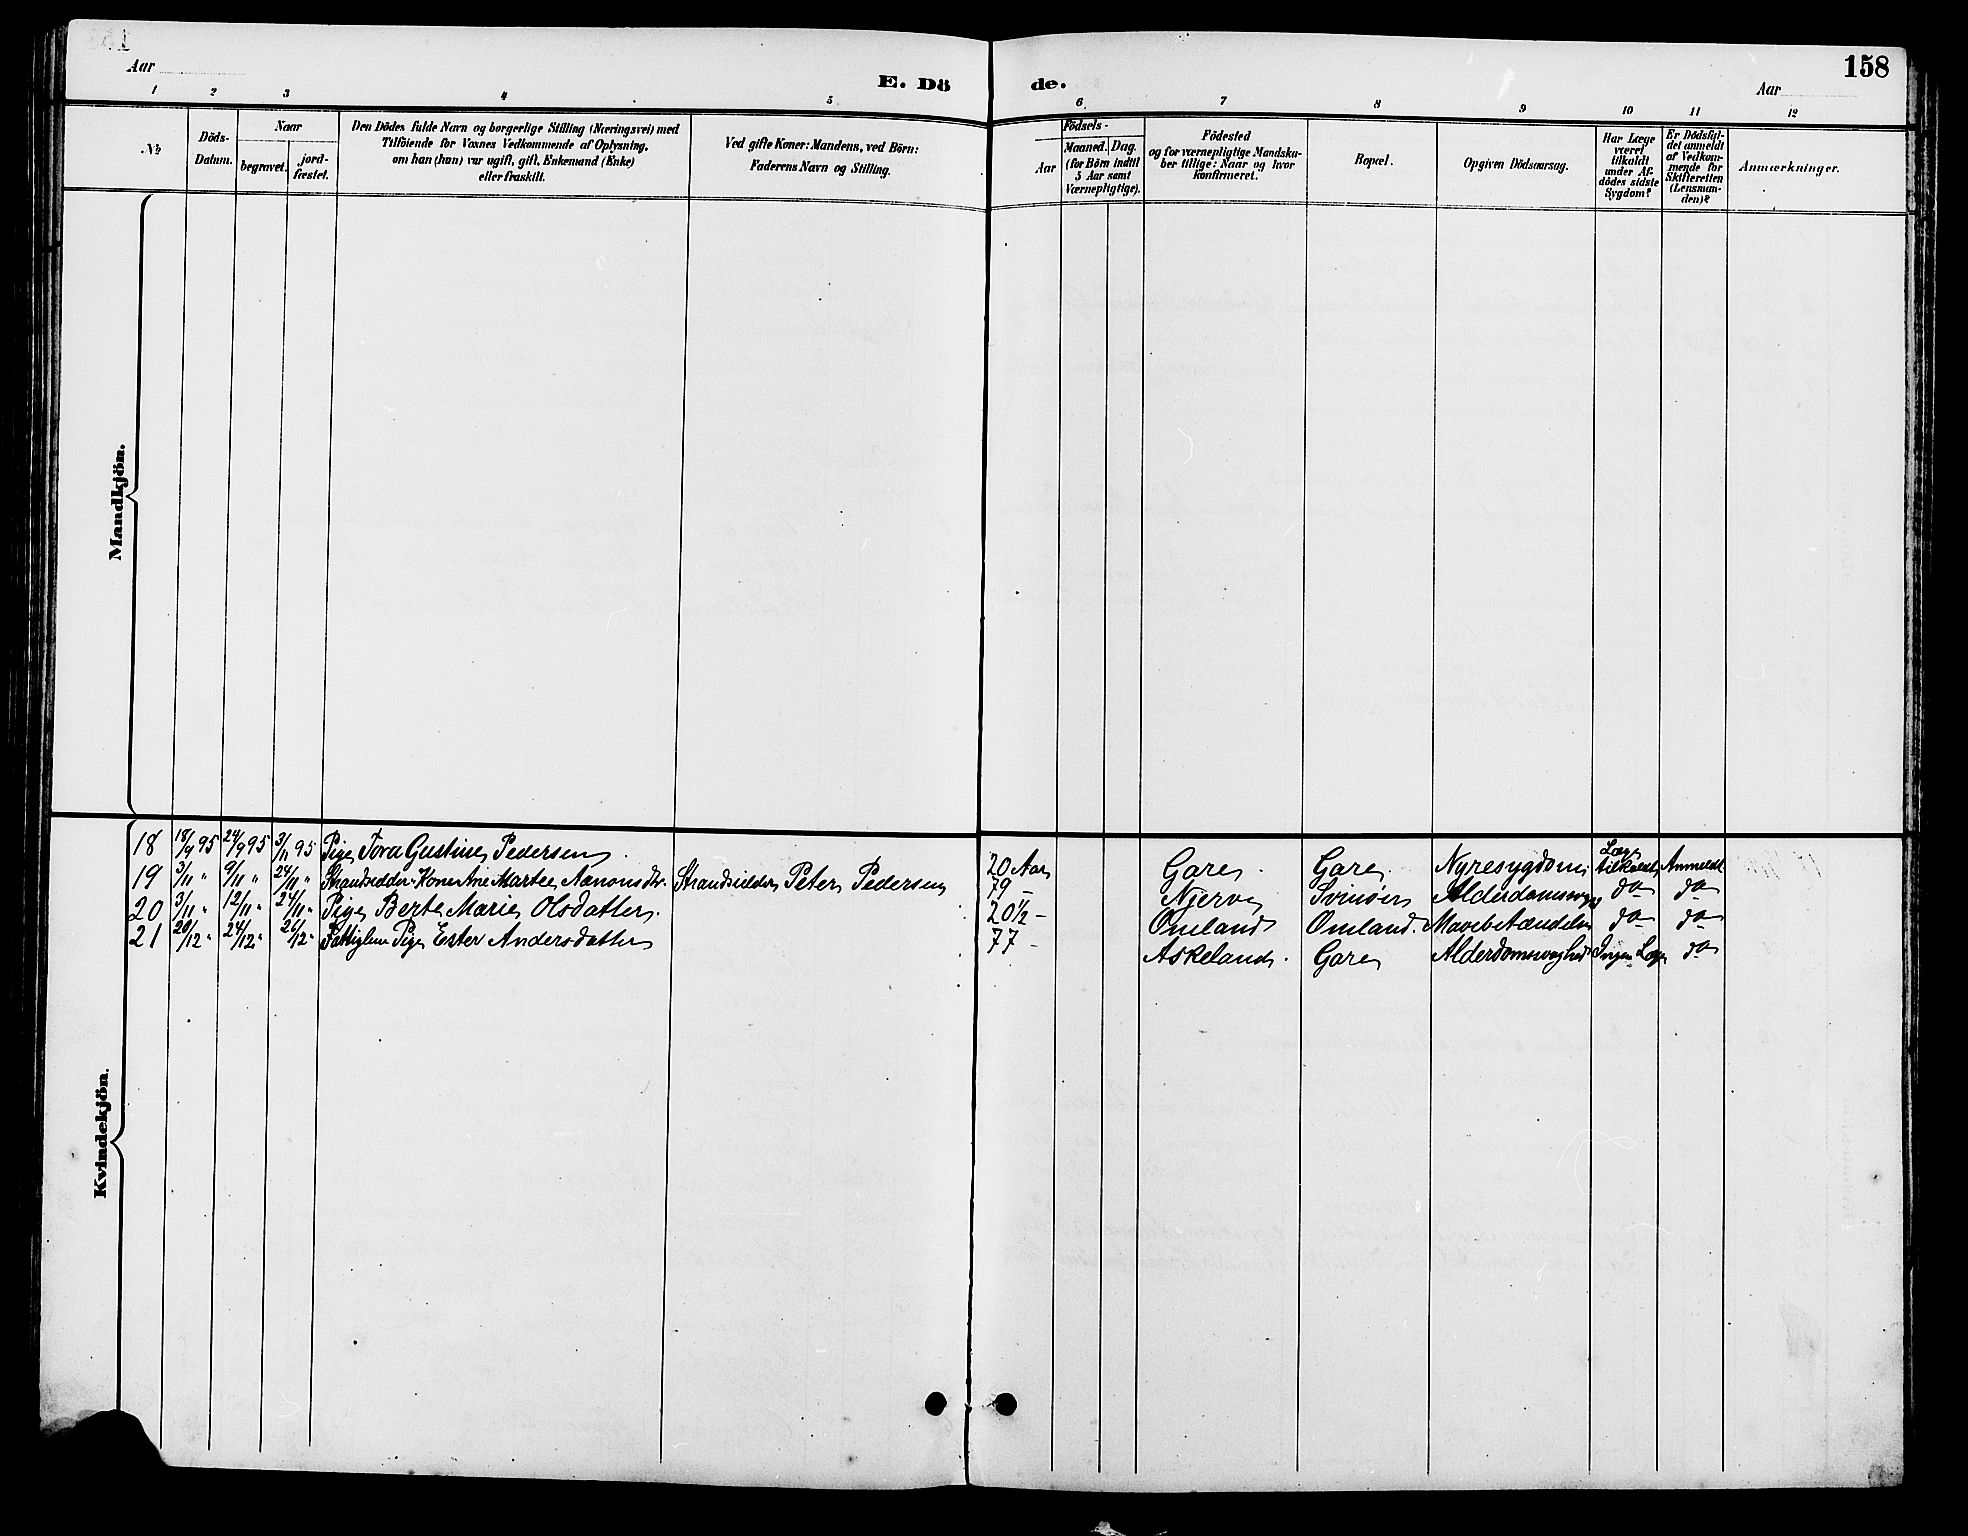 158
Aar
E. Dö de.
Aar
1 2 3 4 5 6 7 8 9 10 11 12
№
Döds-Datum.
Naar
begravet.
jord-fæstet.
Den Dödes fulde Navn og borgerlige Stilling (Næringsvei) med
Tilföiende for Voxnes Vedkommende af Oplysning,
om han (hun) var ugift, gift, Enkemand (Enke)
eller fraskilt.
Ved gifte Koner: Mandens, ved Börn:
Faderens Navn og Stilling.
Födsels-
Aar
Maaned. Dag.
(for Börn indtil
5 Aar samt
Værnepligtige).
Födested
og for værnepligtige Mandska-
ber tillige: Naar og hvor
konfirmeret.
Bopæl.
Opgiven Dödsaarsag.
Har Læge
været
tilkaldt
under Af-
dödes sidste
Sygdom?
Er Dödsfal-
det anmeldt
af Vedkom-
mende for
Skifteretten
(Lensman-
den)?
Anmærkninger.
Mandkjön.
Kvindekjön.
18 18/9 95 24/9 95 3/11 95 Pige Tora Gustine Pedersen. 20 Aar Gare. Gare. Nyresygdom Læge tilkaldt Anmeldt
19 3/11 " 9/11 " 24/11 " Strandsidder-Kone Ane Martee Aanonsdtr. Strandsidder Peter Pedersen 79 - Njerve Svinöer do do
20 3/11 " 12/11 " 24/11 " Pige Berte Marie Olsdatter. 20 1/2 - Omland Omland. Mavebetændelse do do
21 20/12 " 24/12 " 26/12 " Fattiglem Pige Ester Andersdatter 77 - Askeland. Gare Alderdomssvaghed Ingen Læge do